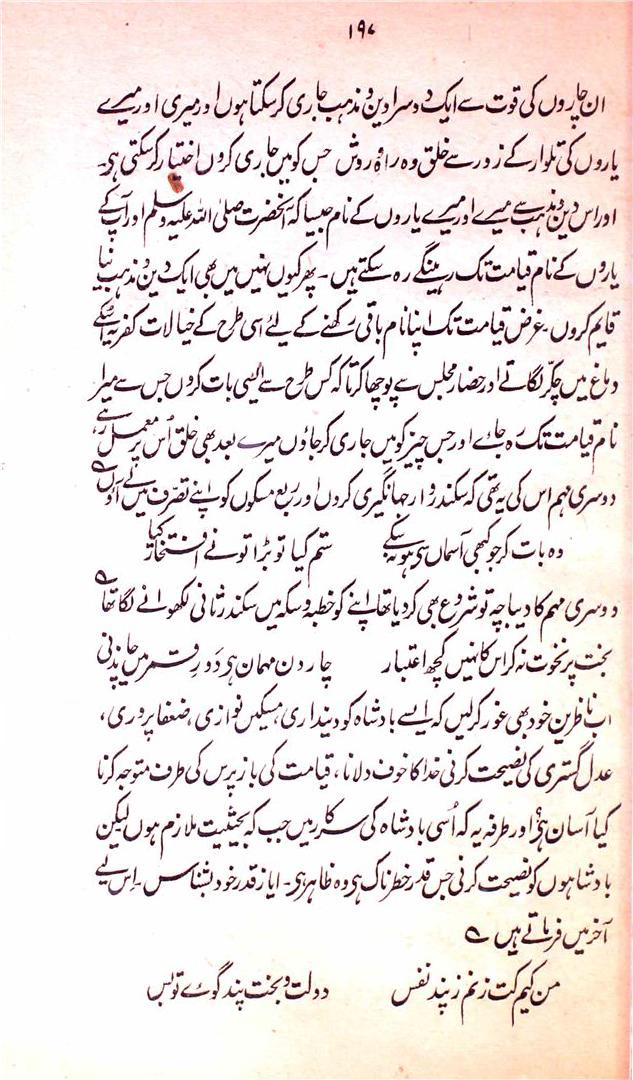 ۱۹۷
ان چاروں کی قوت سے ایک دوسرا دین و مذہب جاری کر سکتا ہوں اور میری اور میرے
یاروں کی تلوار کے زور سے خلق وہ راہ روش جس کو میں جاری کروں اختیار کر سکتی ہی۔
اور اس دین و مذہب سے میرے اور میرے یاروں کے نام جیسا کہ آنحضرت صلی اللہ علیہ وسلم اور آپ کے
یاروں کے نام قیامت تک رہینگے رہ سکتے ہیں۔ پھر کیوں نہیں میں بھی ایک دین و مذہب نیا
قایم کروں۔ غرض قیامت تک اپنا نام باقی رکھنے کے لیئے اسی طرح کے خیالات کفریہ اسکے
دماغ میں چکر لگاتے اور حضار مجلس سے پوچھا کرتا کہ کس طرح سے ایسی بات کروں جس سے میرا
نام قیامت تک رہ جائے اور جس چیز کو میں جاری کر جاؤں میرے بعد بھی خلق اُس پر عمل رہے
دوسری مہم اس کی یہ تھی کہ سکندر وار جہانگیری کروں اور ربع مسکوں کو اپنے تصرف میں لے آؤں ؎
وہ بات کر جو کبھی آسماں سی ہو نہ سکے ستم کیا تو بڑا تونے افتخار کیا
دوسری مہم کا دیباچہ تو شروع بھی کر دیا تھا اپنے کو خطبہ و سکہ میں سکندر ثانی لکھوانے لگا تھا ؎
بخت پر نخوت نہ کر اس کا نہیں کچھ اعتبار چار دن مہمان ہی دَورِ قمر میں چاندنی
اب ناظرین خود بھی غور کر لیں کہ ایسے بادشاہ کو دینداری، مسکین نوازی، ضعفا پروری،
عدل گستری کی نصیحت کرنی خدا کا خوف دلانا، قیامت کی باز پرس کی طرف متوجہ کرنا
کیا آسان ہی؟ اور طرفہ یہ کہ اُسی بادشاہ کی سرکار میں جب کہ بحیثیت ملازم ہوں لیکن
بادشاہوں کو نصیحت کرنی جس قدر خطرناک ہی وہ ظاہر ہی۔ ایاز قدر خود بشناس۔ اِس لیے
آخر میں فرماتے ہیں ؎
من کیم کت زنم ز پند نفس دولت و بخت پند گوے تو بس